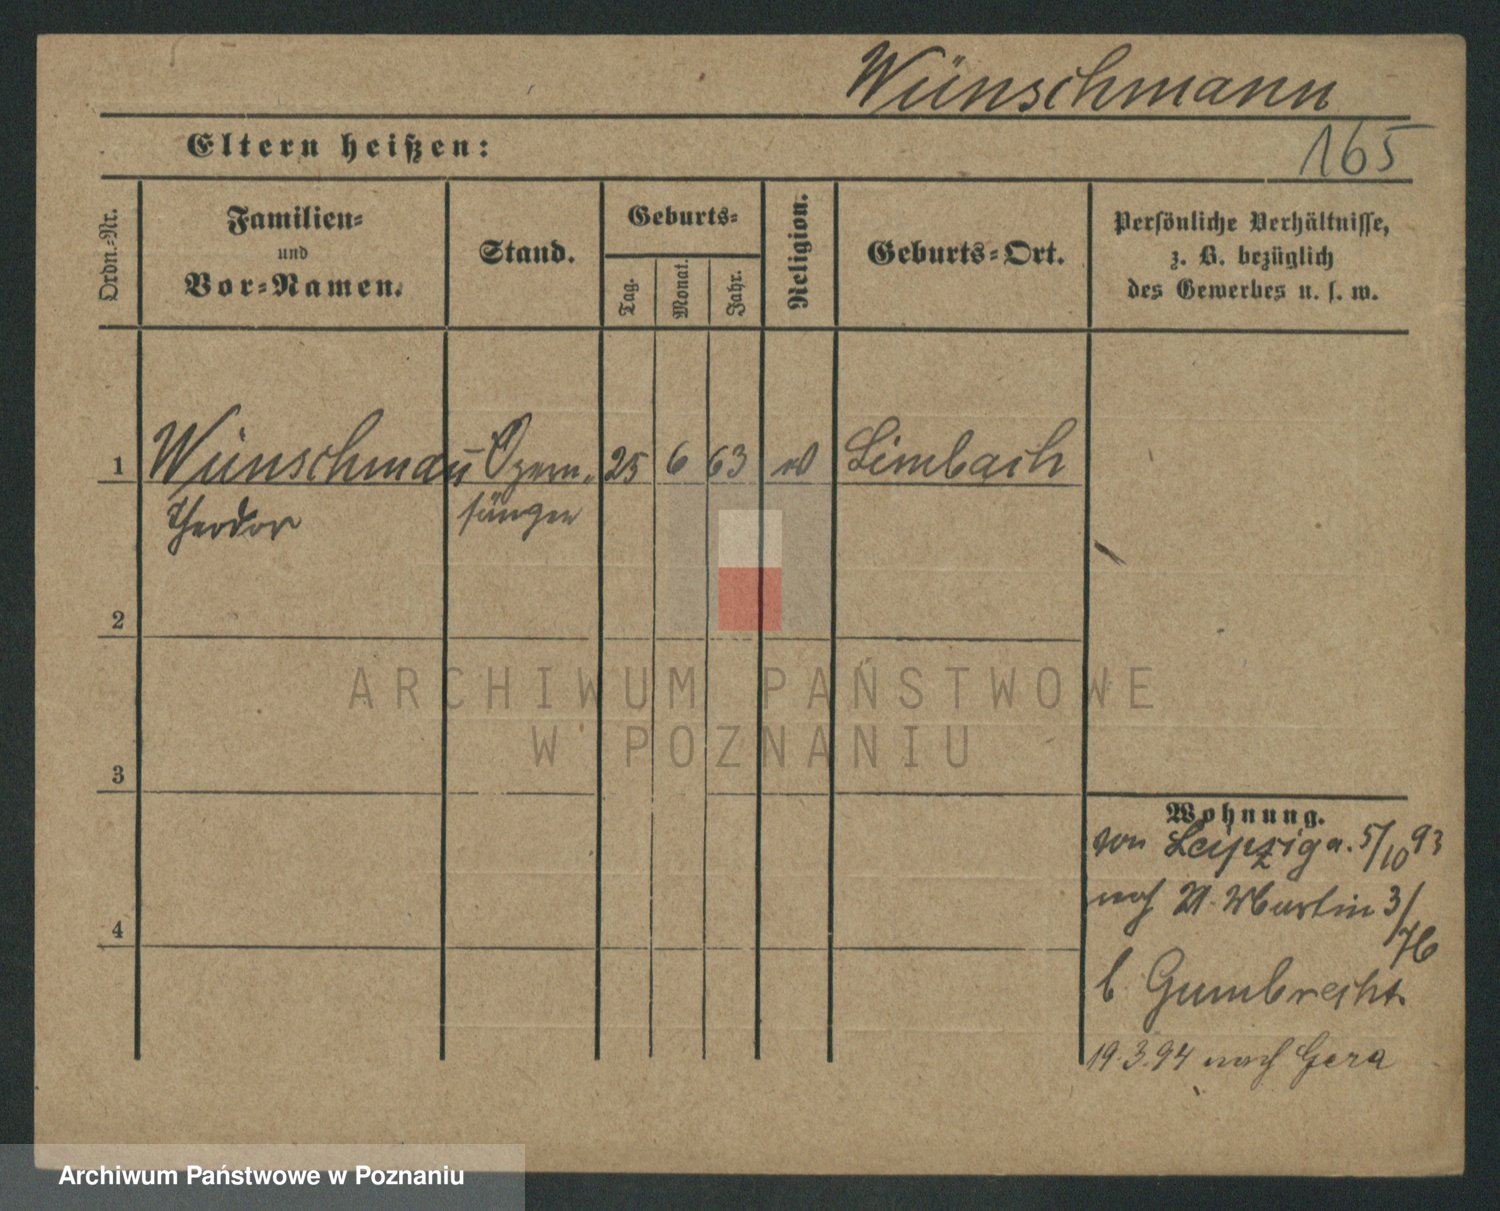 Wünschmann
Eltern heißen:
165
Ordn.=Nr.
Familien=
und
Vor=Namen.
Stand.
Geburts=
Tag.
Monat.
Jahr.
Religion.
Geburts=Ort.
Persönliche Verhältnisse,
z. B. bezüglich
des Gewerbes u. s. w.
1 Wünschmañ Opern- 25 6 63 Limbach
Theodor sänger
2
ARCHIWUM PAŃSTWOWE
W POZNANIU
3
Wohnung.
von Leipzig a. 5/10 93
nach St. Martin 3/
76
b. Gumbrecht
4
19.3.94 nach Gera
Archiwum Państwowe w Poznaniu